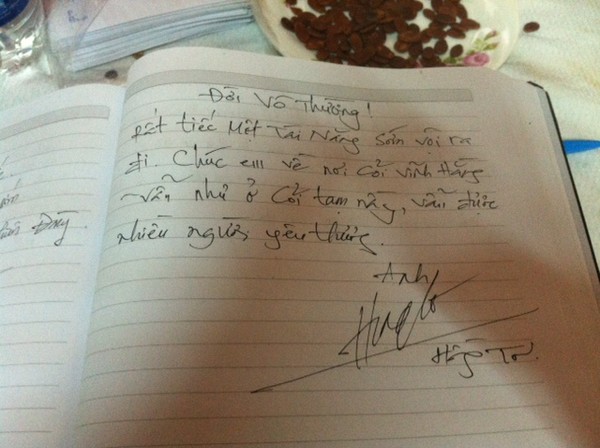 Đời Vô Thường!
rất tiếc Một Tài Năng Sớm vội ra
đi. Chúc em về nơi Cõi vĩnh Hằng
vẫn như ở Cõi tạm này, vẫn được
nhiều người yêu thương.
Anh
Đông